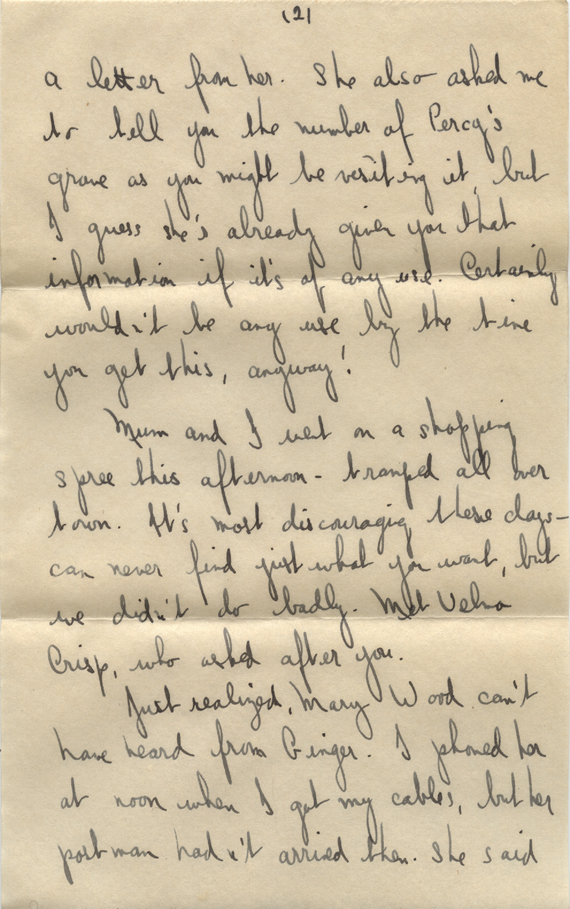 (2)
a letter from her. She also asked me
to tell you the number of Percy's
grave as you might be visiting it, but
I guess she's already given you that
information if it's of any use. Certainly
wouldn't be any use by the time
you get this, anyway!
Mum and I went on a shopping
spree this afternoon - tramped all over
town. It's most discouraging these days -
can never find just what you want, but
we didn't do badly. Met Velma
Crisp, who asked after you.
Just realized, Mary Wood can't
have heard from Ginger. I phoned her
at noon when I got my cables, but her
postman hadn't arrived then. She said